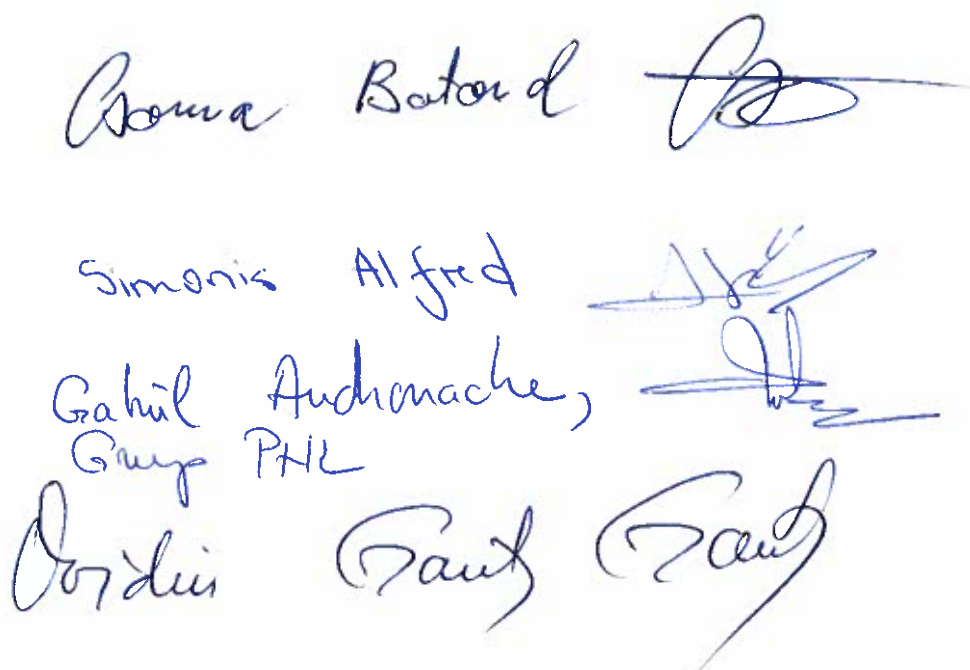 Csoma Botond
Simonis Alfred
Gabriel Andronache,
Grup PNL
Ovidiu Ganț Ganț